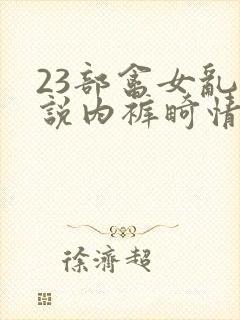 23部畲女乱
說内裤畸情
徐濟超